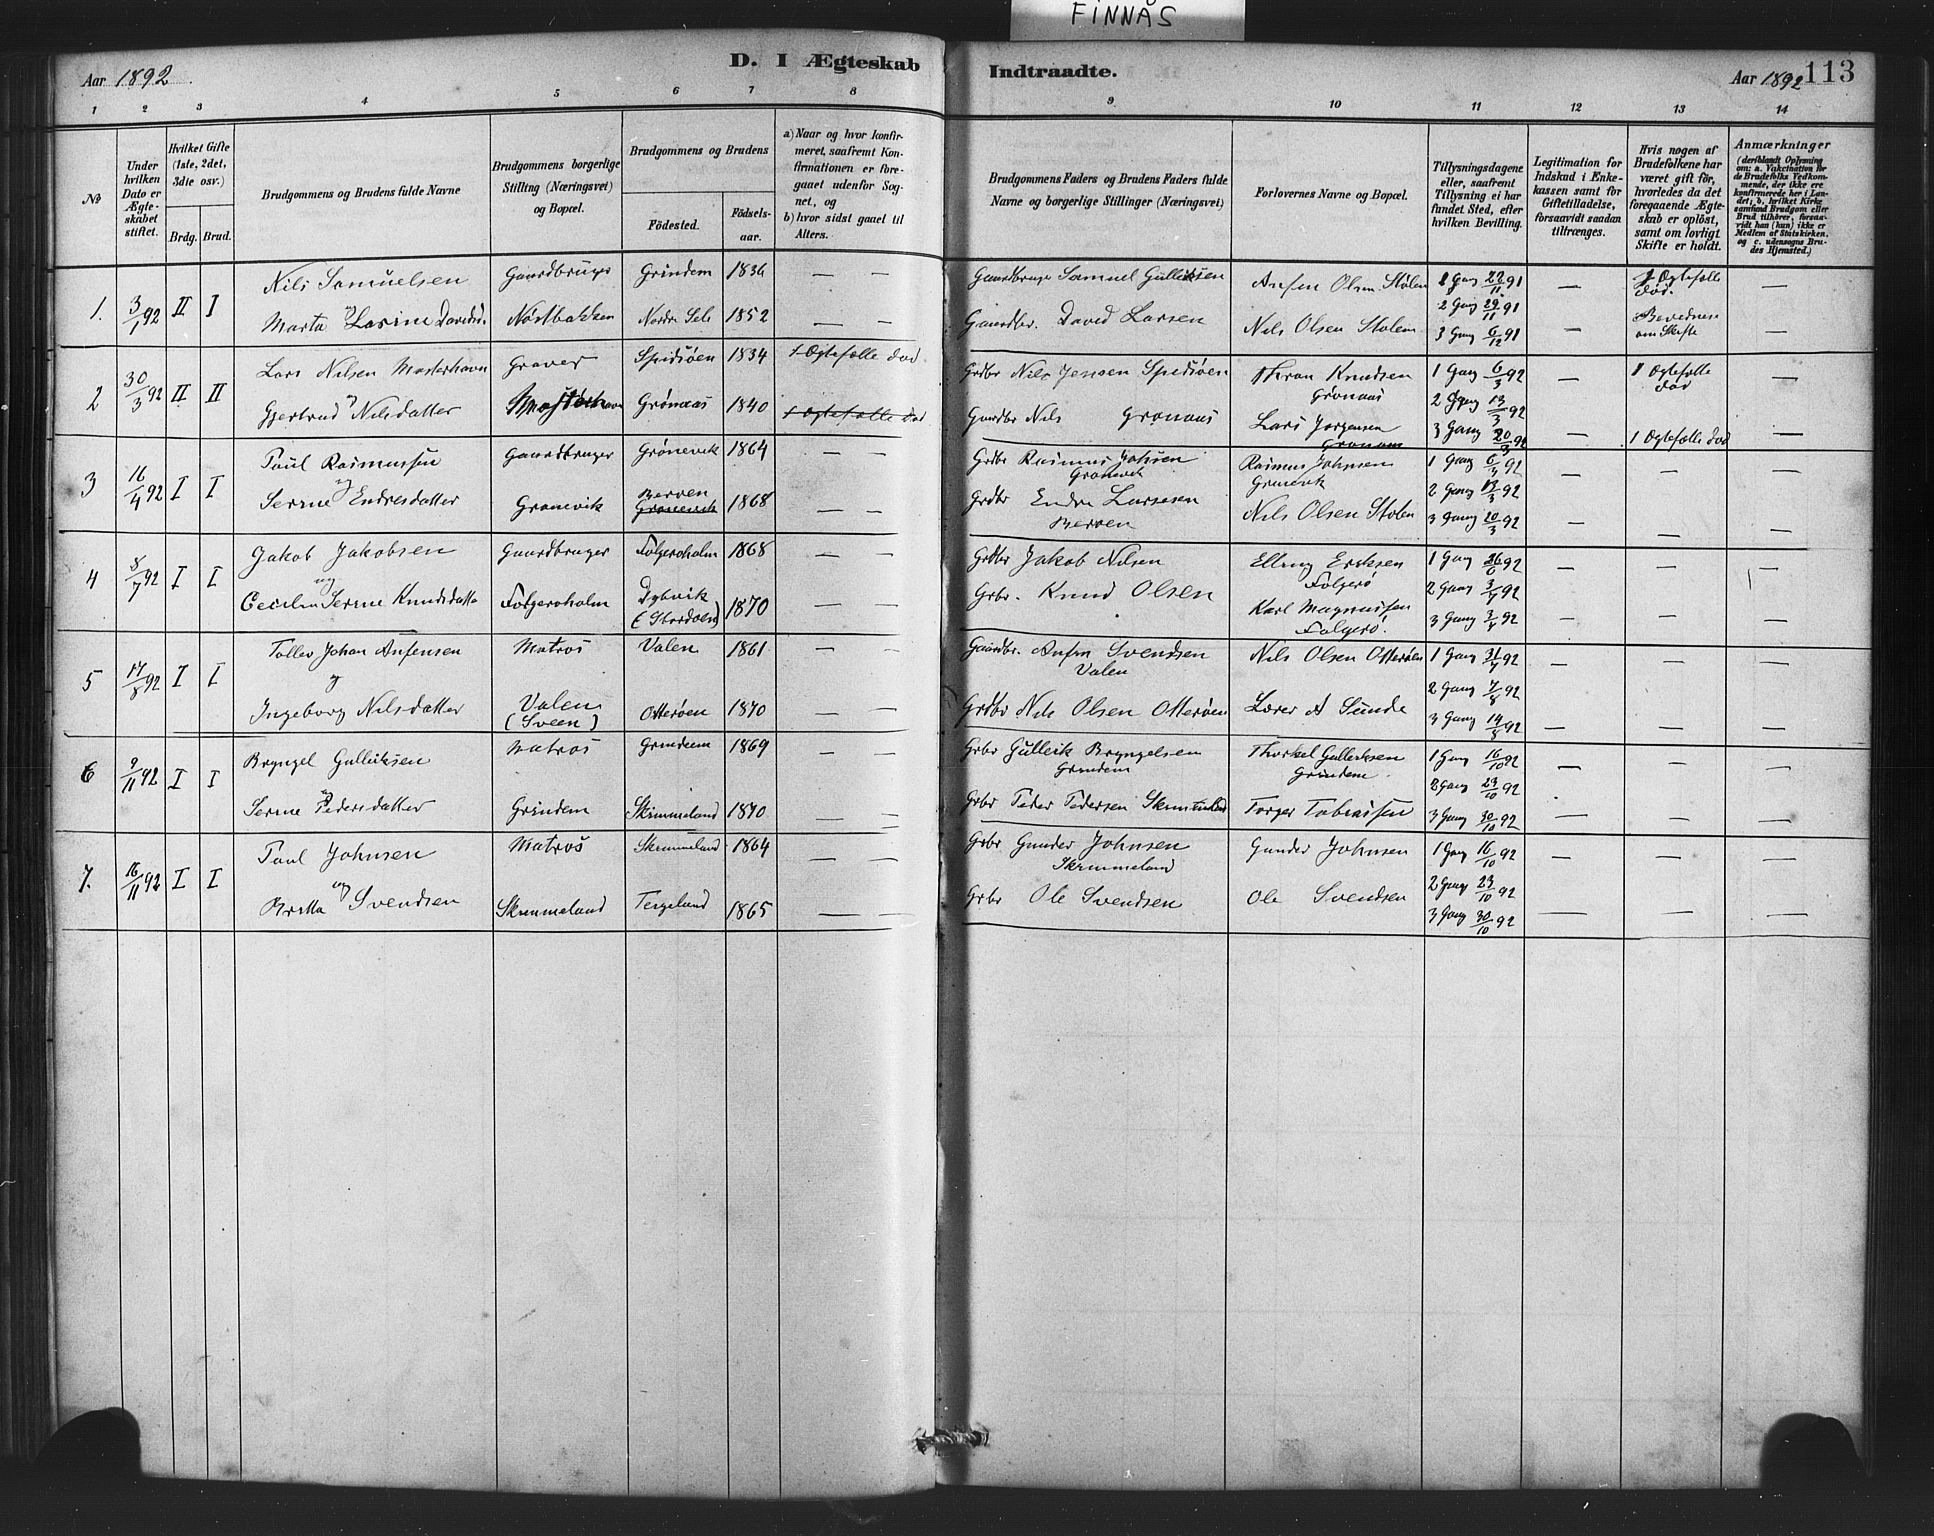 FINNÅS
Aar 1892.
D. I Ægteskab
Indtraadte.
Aar 1892
113
1 2 3 4 5 6 7 8 9 10 11 12 13 14
No
Under hvilken Dato er Ægteskabet stiftet.
Hvilket Gifte (1ste, 2det, 3die osv.)
Brdg. Brud.
Brudgommens og Brudens fulde Navne
Brudgommens borgerlige Stilling (Næringsvei) og Bopæl.
Brudgommens og Brudens
Födested.
Födselsaar.
a) Naar og hvor konfirmeret, saafremt Konfirmationen er foregaaet udenfor Sognet, og
b) hvor sidst gaaet til Alters.
Brudgommens Faders og Brudens Faders fulde Navne og borgerlige Stillinger (Næringsvei)
Forlovernes Navne og Bopæl.
Tillysningsdagene eller, saafremt Tillysning ei har fundet Sted, efter hvilken Bevilling.
Legitimation for Indskud i Enkekassen samt for Giftetilladelse, forsaavidt saadan tiltrænges.
Hvis nogen af Brudefolkene har været gift för, hvorledes da det foregaaende Ægteskab er oplöst, samt om lovligt Skifte er holdt.
Anmærkninger
(deriblandt Oplysning om: a. Vakcination for de Brudefolks Vedkommende, der ikke ere konfirmerede her i Landet; b. hvilket Kirkesamfund Brudgom eller Brud tilhörer, forsaavidt han (hun) ikke er Medlem af Statskirken. og c. udensogns Brudes Hjemsted.)
1. 3/1 92 II I Nils Samuelsen Gaardbruger Grindem 1836 — — Gaardbruger Samuel Gulliksen Anfin Olsen Stolen 1 Gang 22/11 91 — 1 Ægtefælle död. —
og
Marta Larine Davidsd. Nöstbakken Nordre Sele 1852 — — Gaardbr. David Larsen Nils Olsen Stolen 2 Gang 29/11 91
3 Gang 6/12 91 — Bevidnes om Skifte —
2 30/3 92 II II Lars Nilsen Mosterhavn Graver Spidsöen 1834 1 Ægtefælle död Grdbr Nils Jensen Spidsöen Thron Knudsen Grönaas 1 Gang 6/3 92 — 1 Ægtefælle död
og
Gjertrud Nilsdatter Mosterhavn Grönaas 1840 1 Ægtefælle död Gaardbr Nils Grönaas Lars Jørgensen Grönaas 2 Gang 13/3 92
3 Gang 20/3 92 — 1 Ægtefælle död —
3 16/4 92 I I Paul Rasmussen Gaardbruger Grönevik 1864 — — Grdbr Rasmus Johnsen Grönevik Rasmus Johnsen Grönevik 1 Gang 6/3 92 — — —
og
Serine Endresdatter Grønevik Berven Grønevik 1868 — — Grdbr Endre Larsen Berven Nils Olsen Stolen 2 Gang 13/3 92
3 Gang 20/3 92 — — —
4 8/7 92 I I Jakob Jakobsen Gaardbruger Folgeroholm 1868 — — Grdbr Jakob Nilsen Elling Eriksen Folgerö 1 Gang 26/6 92 — — —
og
Cecilia Serine Knudsdatter Folgeroholm Dybvik (Stordöen) 1870 — — Grbr. Knud Olsen Karl Magnussen Folgerö. 2 Gang 3/7 92
3 Gang 3/7 92 — — —
5 17/8 92 I I Tollev Johan Anfinsen Matros Valen 1861 — — Gaardbr. Anfin Svendsen Valen Nils Olsen Otteröen 1 Gang 31/7 92 — — —
og
Ingeborg Nilsdatter Valen (Sveen) Otteröen 1870 — — Grdbr Nils Olsen Otteröen Lærer A Sunde 2 Gang 7/8 92
3 Gang 14/8 92 — — —
6 9/11 92 I I Bryngel Gulliksen Matros Grindem 1869 — — Grbr Gullik Bryngelsen Grindem Thorkel Gulliksen Grindem. 1 Gang 16/10 92 — — —
og
Serine Pedersdatter Grindem Skimmeland 1870 — — Grbr Peder Pedersen Skimmeland Torger Tobiassen 2 Gang 23/10 92
3 Gang 30/10 92 — — —
7. 16/11 92 I I Paul Johnsen Matros Skimmeland 1864 — — Grbr Gunder Johnsen Skimmeland Gunder Johnsen 1 Gang 16/10 92 — — —
og
Britta Svendsen Skimmeland Tergeland 1865 — — Grbr Ole Svendsen Ole Svendsen 2 Gang 23/10 92
3 Gang 30/10 92 — — —